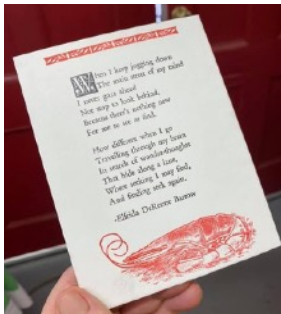 When I keep jogging down
The main street of my mind
I never gaze ahead
Nor stop to look behind,
Because there's nothing new
For me to see or find.
How different when I go
Travelling through my heart
In search of wonder-thoughts
That hide along a lane,
Where seeking I may find,
And finding seek again.
-Elfrida DeRenne Barrow